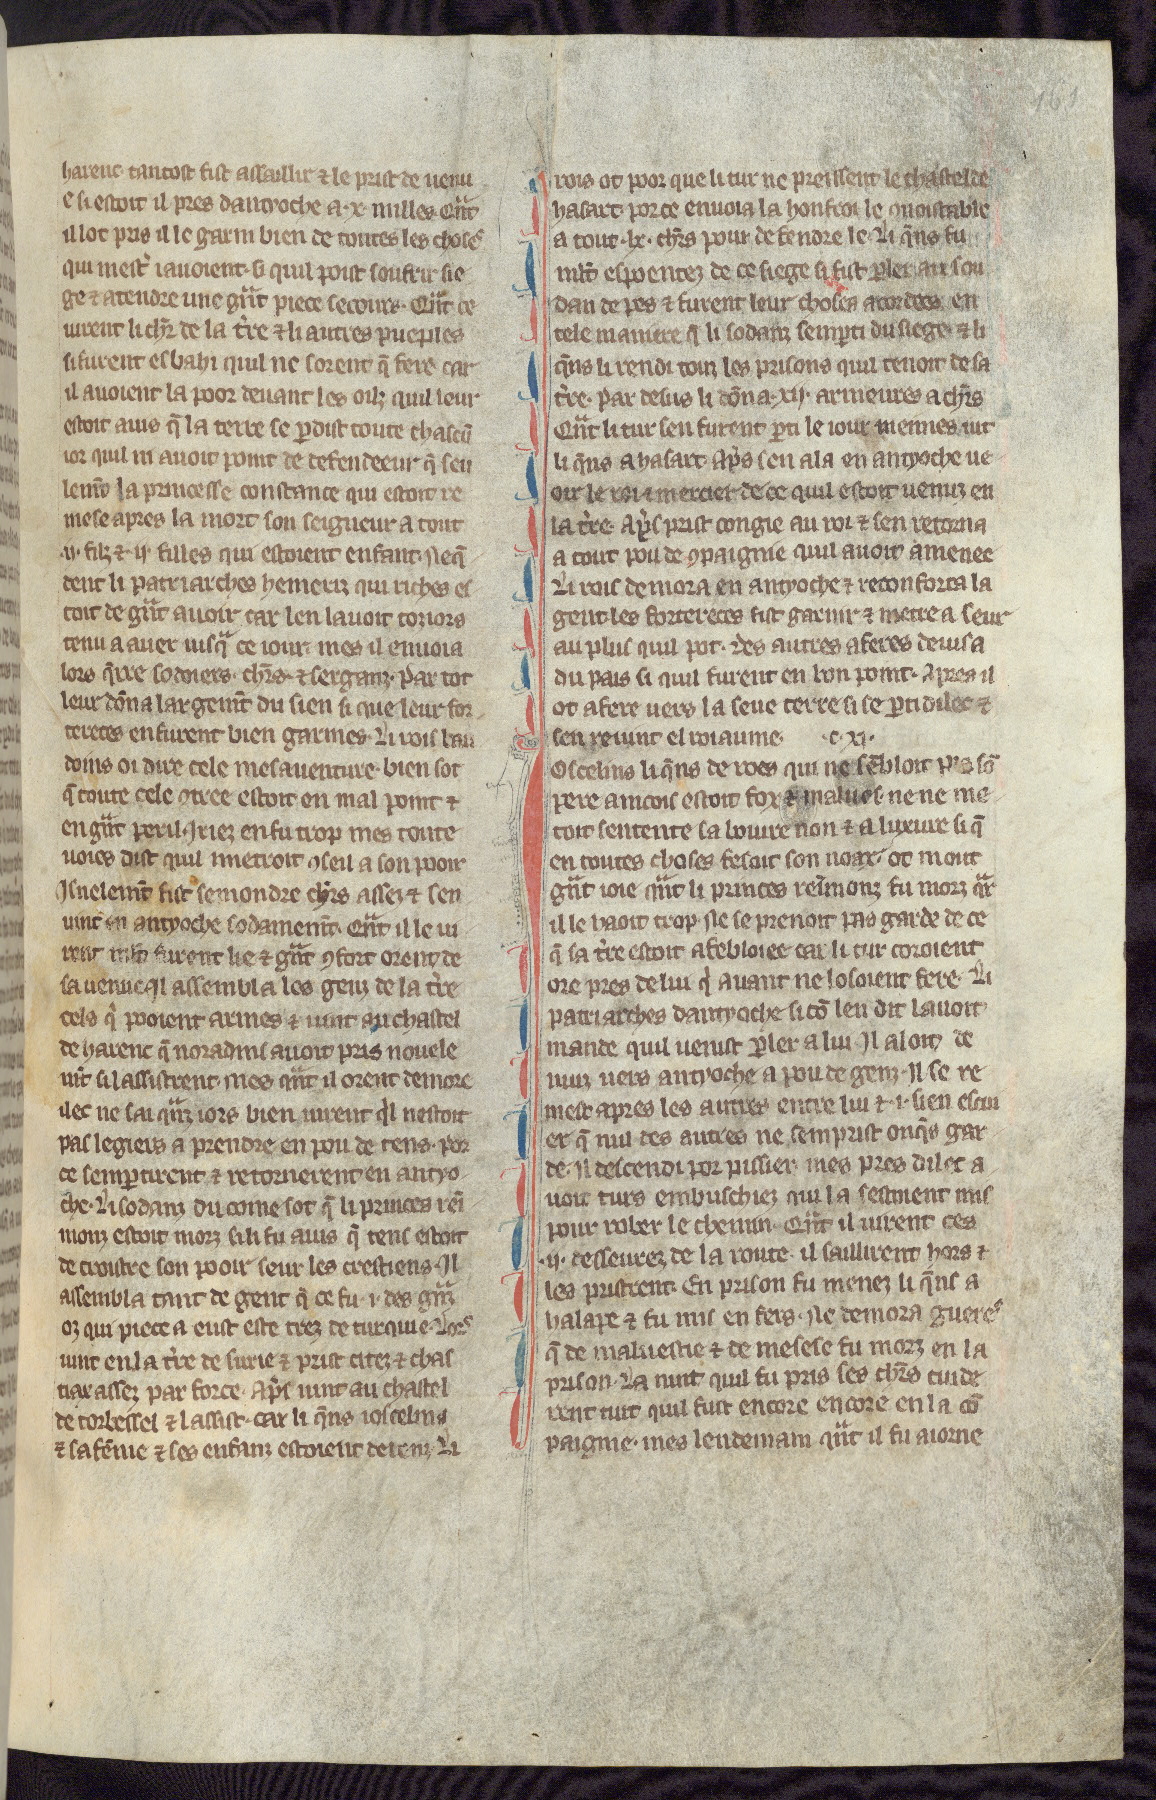 161
harenc tantost fist assaillir ⁊ le prist de venu
e si estoit il pres dantyoche a .x. milles. Qn̄t
il lot pris il le garni bien de toutes les choses
qui mestr̄ i avoient. si quil poist soufrir sie
ge ⁊ atendre une gn̄t piece secours. Qn̄t ce
virent li chr̄ de la tr̄re ⁊ li autres pueples
si furent esbahi quil ne sorent q̄ fere car
il avoient la poor devant les oilz quil leur
estoit avis q̄ la terre se ꝑdist toute chascū
ior quil ni avoit point de defendeeur q̄ seu
lemn̄t la princesse constance qui estoit re
mese apres la mort son seigneur a tout
.ii. filz ⁊ .ii. filles qui estoient enfant. Neq̄
dent li patriarches hemeriz qui riches es
toit de gn̄t avoir car len lavoit toriors
tenu a aver iusq̄ ce iour. mes il envoia
lors q̄rre sodoiers. chr̄s. ⁊ serganz. par tot
leur dōna largemn̄t du sien si que leur for
tereces en furent bien garnies. Li rois bau
doins oi dire cele mesaventure. bien sot
q̄ toute cele ꝯtree estoit en mal point ⁊
en gn̄t peril. Iriez en fu trop mes toute
voies dist quil i metroit ꝯseil a son pooir
Isnelemn̄t fist semondre chr̄s assez ⁊ sen
vint en antyoche sodamenn̄t. Qn̄t il le vi
rent mlt̄ furent lie ⁊ gn̄t ꝯfort orent de
sa venue. Il assembla les genz de la tr̄re
cels q̄ pooient armes ⁊ vint au chastel
de harenc q̄ noradins avoit pris novele
mt̄ si lassistrent. mes qn̄t il orent demore
ilec ne sai qn̄z iors bien virent q̄l nestoit
pas legiers a prendre en pou de tens. por
ce sempartirent ⁊ retornerent en antyo
che. Li sodanz du coine sot q̄ li princes rei
monz estoit morz si li fu avis q̄ tens estoit
de croistre son pooir seur les crestiens. Il
assembla tant de gent q̄ ce fu .i. des gn̄z
oz qui piece a eust este trez de turquie. Lors
vint en la tr̄re de surie ⁊ prist citez ⁊ chas
tiax assez par force. Ap̄s vint au chastel
de torbessel ⁊ lassist. car li q̄ns ioscelins
⁊ sa fēme ⁊ ses enfanz estoient deienz. Li
rois ot poor que li tur ne preissent le chastel de
hasart. por ce envoia la honfroi le ꝯnoistable
a tout .lx. chr̄s pour defendre le. Li q̄ns fu
mlt̄ espoentez de ce siege si fist ꝑler au sou
dan de pes ⁊ furent leur choses acordees en
tele maniere q̄ li sodanz senꝑti du siege ⁊ li
q̄ns li rendi touz les prisons quil tenoit de sa
tr̄re. par desus li dōna .xii. armeures a chr̄s
Qn̄t li tur sen furent ꝑti le iour meismes vit
li q̄ns a hasart. ap̄s sen ala en antyoche ve
oir le roi ⁊ mercier de ce quil estoit venuz en
la tr̄re. Ap̄s prist congie au roi ⁊ sen retorna
a tout pou de ꝯpaignie quil avoit amenee
Li rois demora en antyoche ⁊ reconforta la
gent. les fortereces fist garnir ⁊ metre a seur
au plus quil pot. des autres aferes devisa
du pais si quil furent en bon point. Apres il
ot afere vers la seue terre si se ꝑti dilec ⁊
sen revint el roiaume. .c.xi.
Oscelins li q̄ns de roes qui ne sēbloit pas sō
pere aincois estoit fox ⁊ malves. ne ne me
toit sentente sa boivre non ⁊ a luxure si q̄
en toutes choses fesoit son noax. ot mout
gn̄t ioie qn̄t li princes reimonz fu morz qr̄
il le haoit trop. Ne se prenoit pas garde de ce
q̄ sa tr̄re estoit afebloiee car li tur coroient
ore pres de lui q̄ avant ne losoient fere. Li
patriarches dantyoche si cō len dit lavoit
mande quil venist ꝑler a lui. Il aloit de
nuiz vers antyoche a pou de genz. Il se re
mest apres les autres entre lui ⁊ .i. sien escui
er q̄ nul des autres ne semprist onq̄s gar
de. Il descendi por pissier. mes pres dilec a
voit turs embuschiez qui la sestoient mis
pour rober le chemin. Qn̄t il virent ces
.ii. desseurez de la route. il saillirent hors ⁊
les pristrent. En prison fu menez li q̄ns a
halape ⁊ fu mis en fers. Ne demora gueres
q̄ de malvestie ⁊ de mesese fu morz en la
prison. La nuit quil fu pris ses chr̄s cuide
rent tuit quil fust encore encore en la cō
paignie. mes lendemain qn̄t il fu aiorne